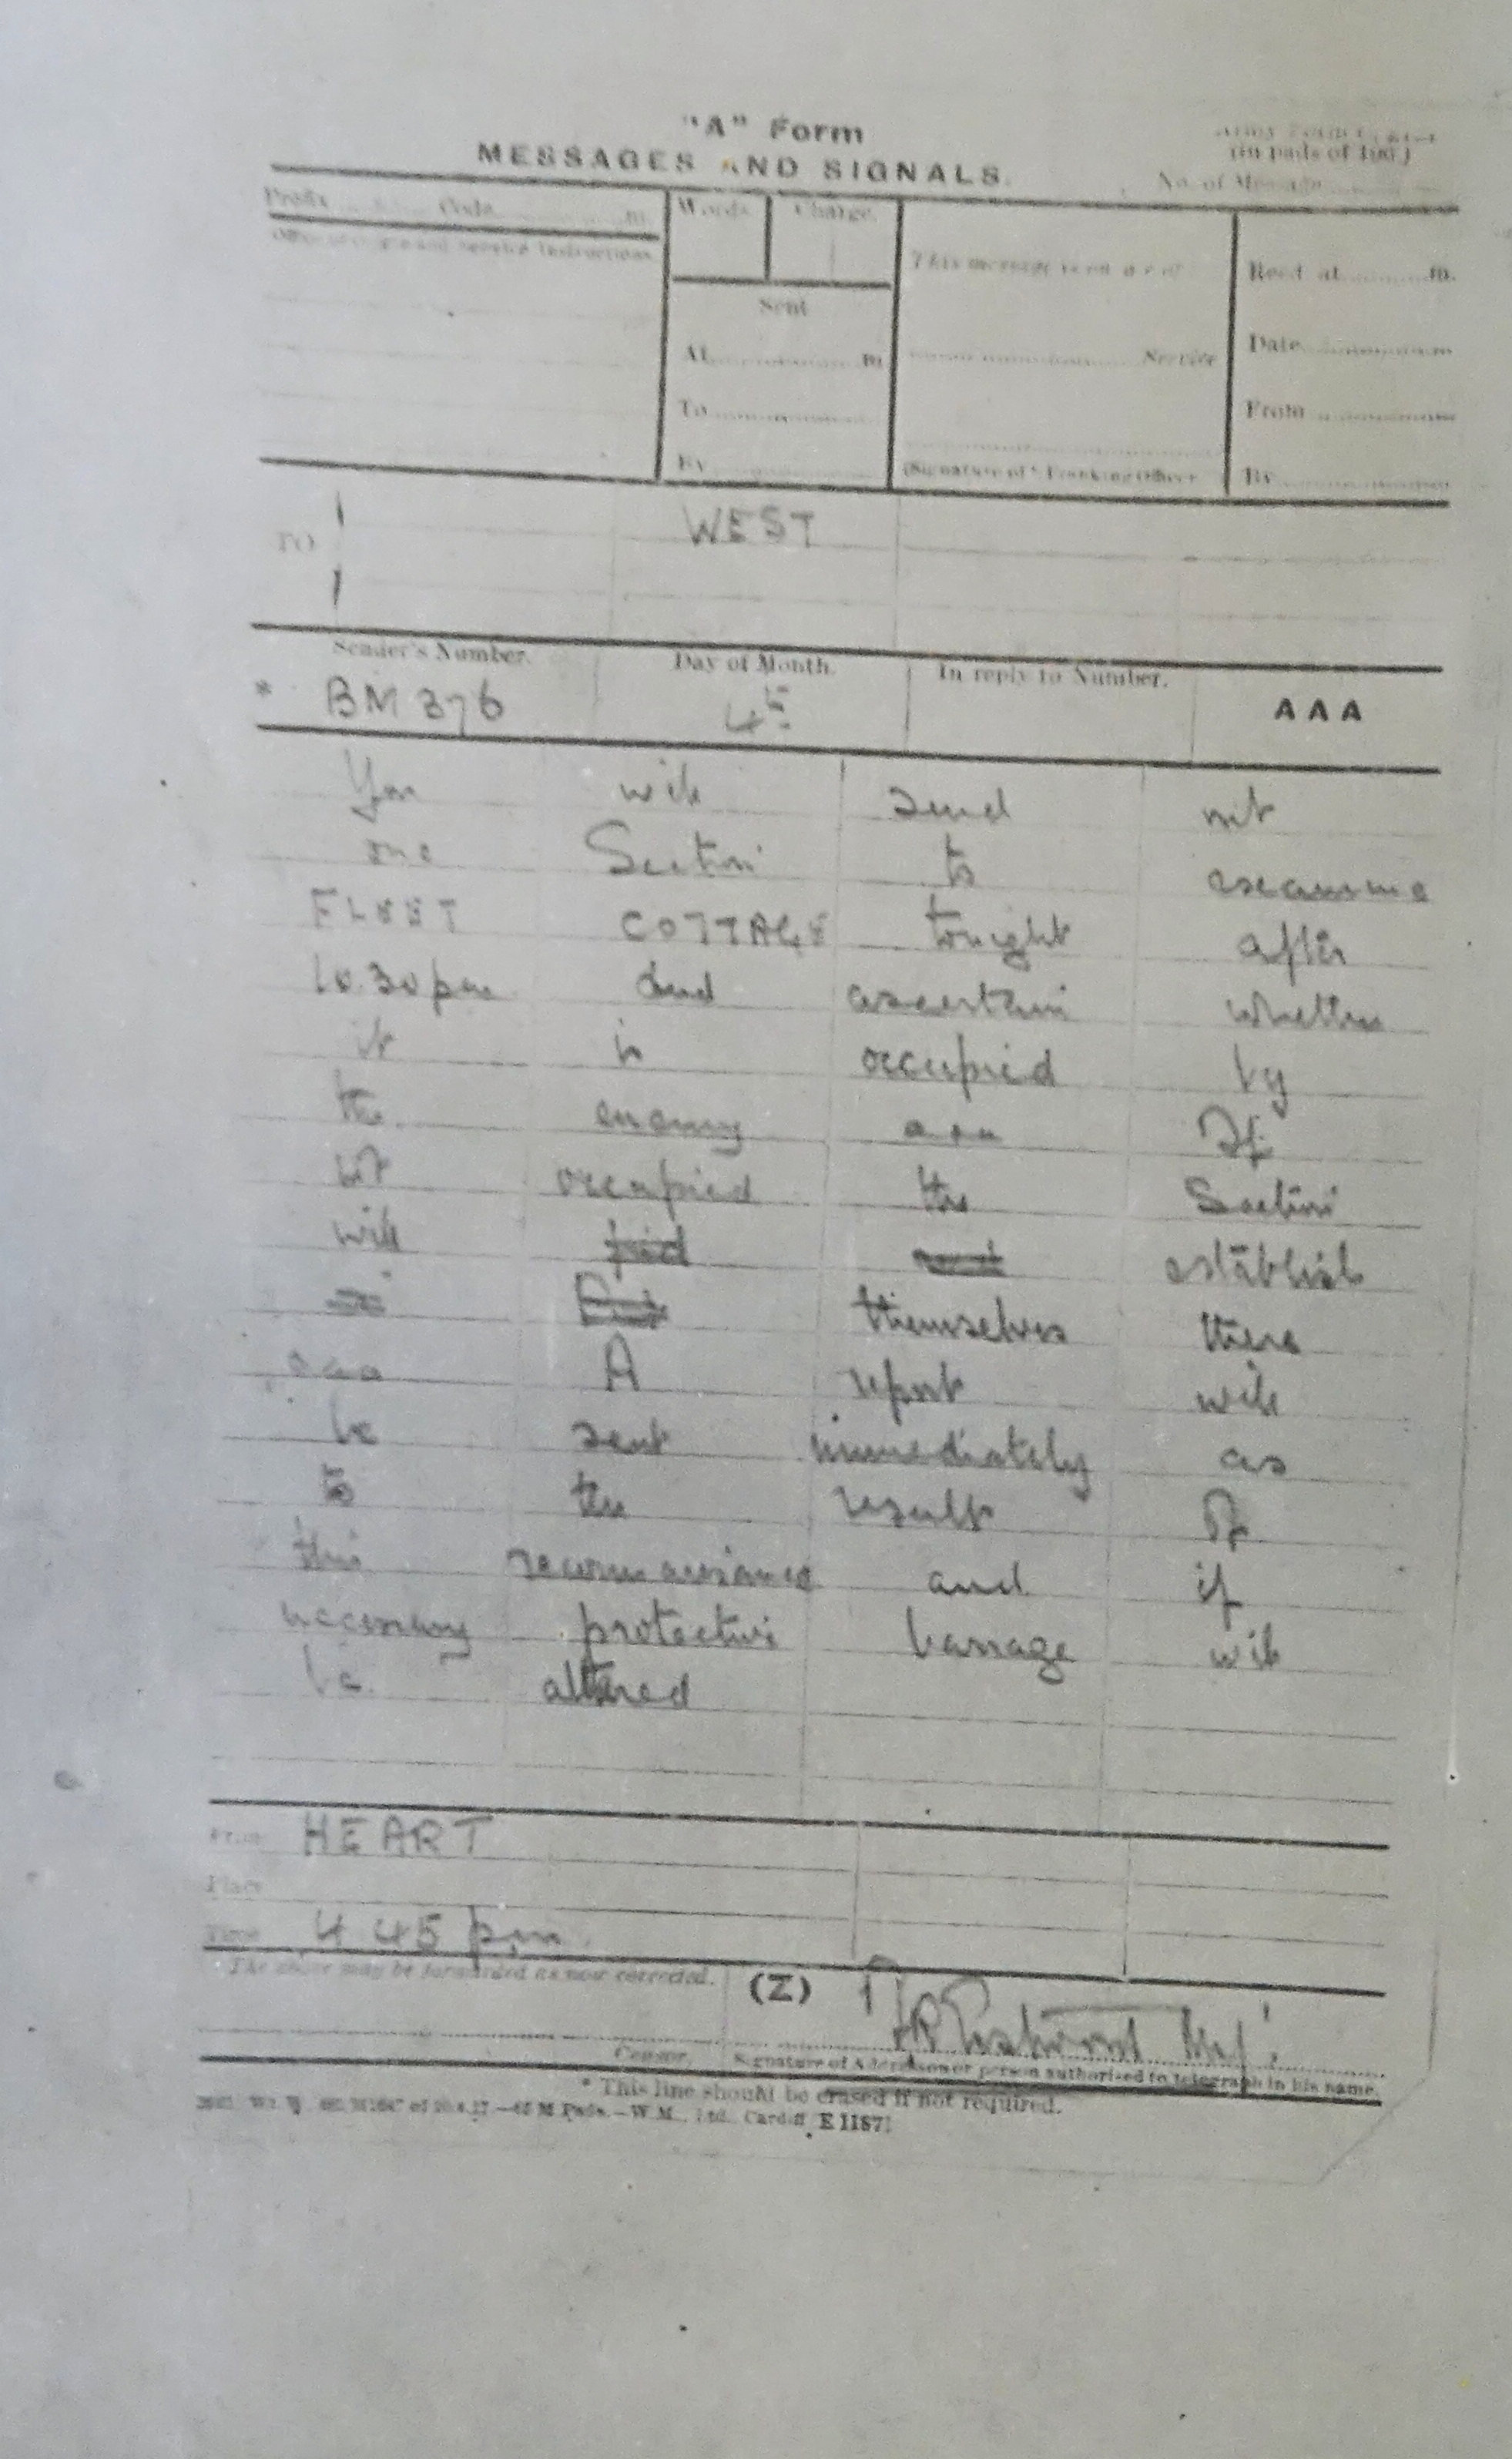 "A" Form
MESSAGES AND SIGNALS.
(in pads of 100.)
No. of Message
Prefix Code m.
Words Charge.
Office of Origin and Service Instructions.
This message is on a/c of
Recd. at m.
Sent
At m.
Service
Date
To
From
By
(Signature of "Franking Officer
By
TO WEST
Sender's Number. Day of Month. In reply to Number. AAA
* BM 376 4th
You will send out
one Section to examine
FLEET COTTAGE tonight after
10.30 pm and ascertain whether
it is occupied by
the enemy aaa If
not occupied the Section
will establish
themselves there
aaa A report will
be sent immediately as
to the result of
this reconnaissance and if
necessary protective barrage will
be altered
From HEART
Place
Time 4 45 pm
The above may be forwarded as now corrected. (Z)
Censor. Signature of Addressor or person authorised to telegraph in his name.
* This line should be erased if not required.
Pads.—W.M., Ltd. Cardiff. E 1187.